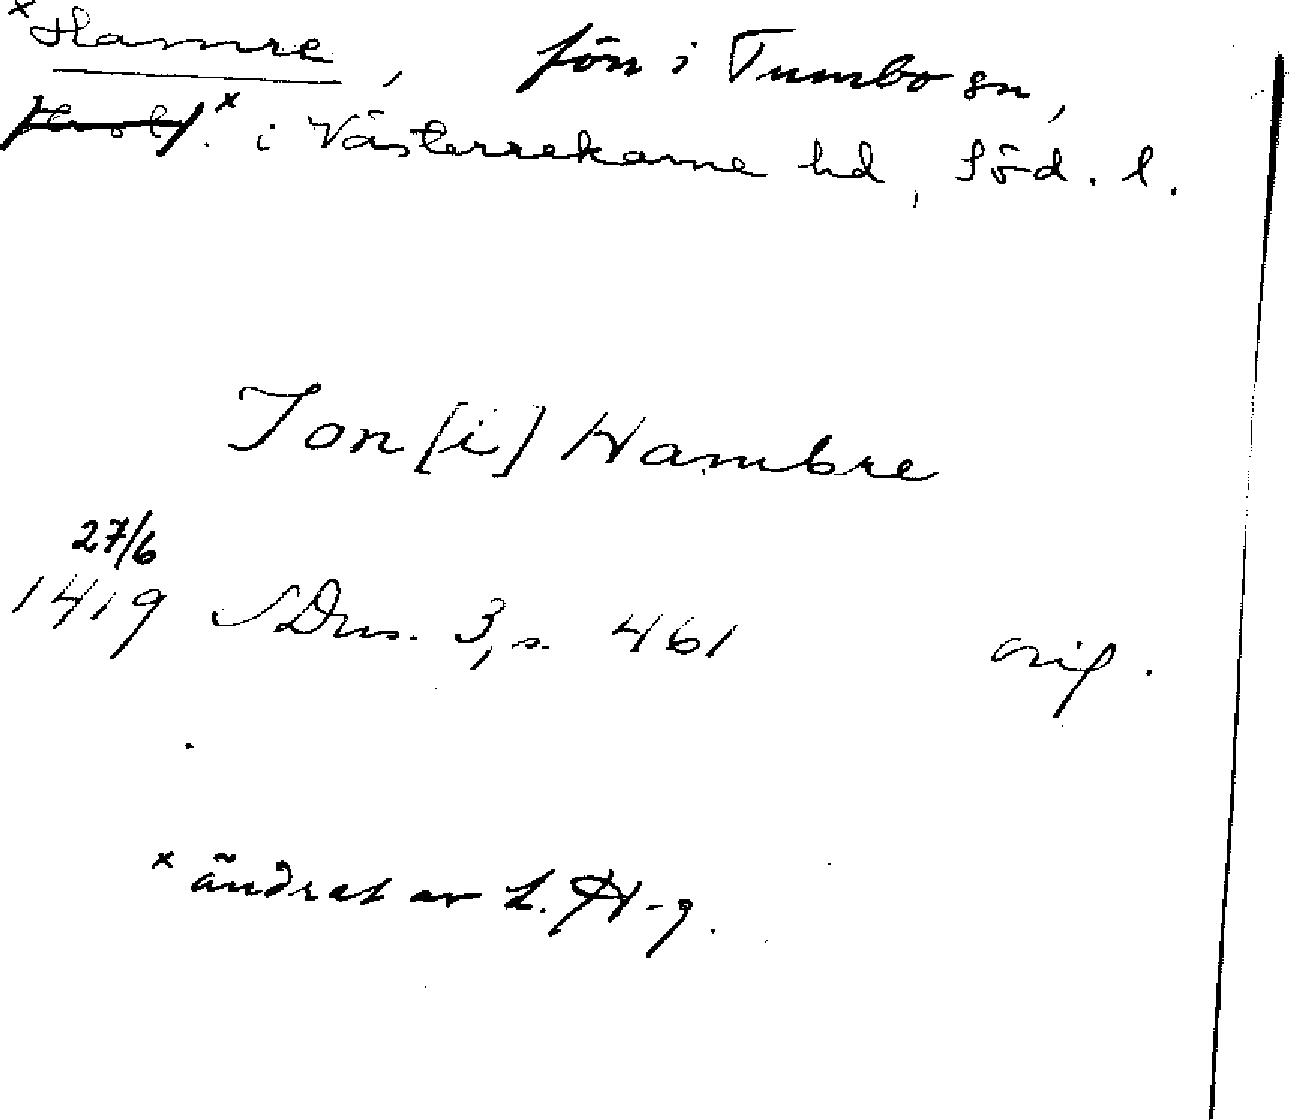 x Hamre, förr i Tumbo sn,
x i Västerrekarne hd, Söd. l.
Jon [i] Hambre
27/6
1419 SDns. 3, s. 461 orig.
x ändrat av L. H-g.